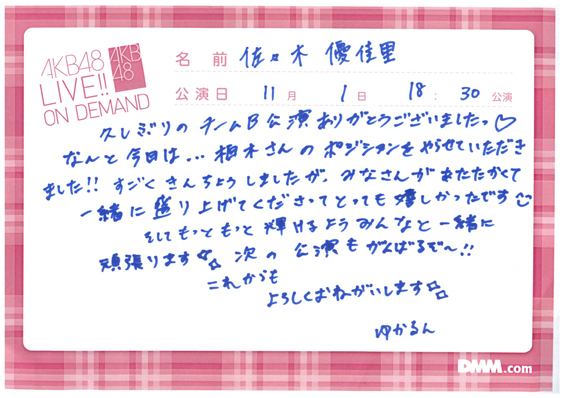 AKB48
LIVE!!
ON DEMAND
AKB
48
名前 佐々木 優佳里
公演日 11月 1日 18:30公演
久しぶりのチームB公演ありがとうございましたっ♡
なんと今日は…柏木さんのポジションをやらせていただき
ました!!すごくきんちょうしましたが、みなさんがあたたかくて
一緒に盛り上げてくださってとっても嬉しかったです
そしてもっともっと輝けるようみんなと一緒に
頑張ります☆。次の公演もがんばるぞ〜!!
これからも
よろしくおねがいします☆
ゆかるん
DMM.com